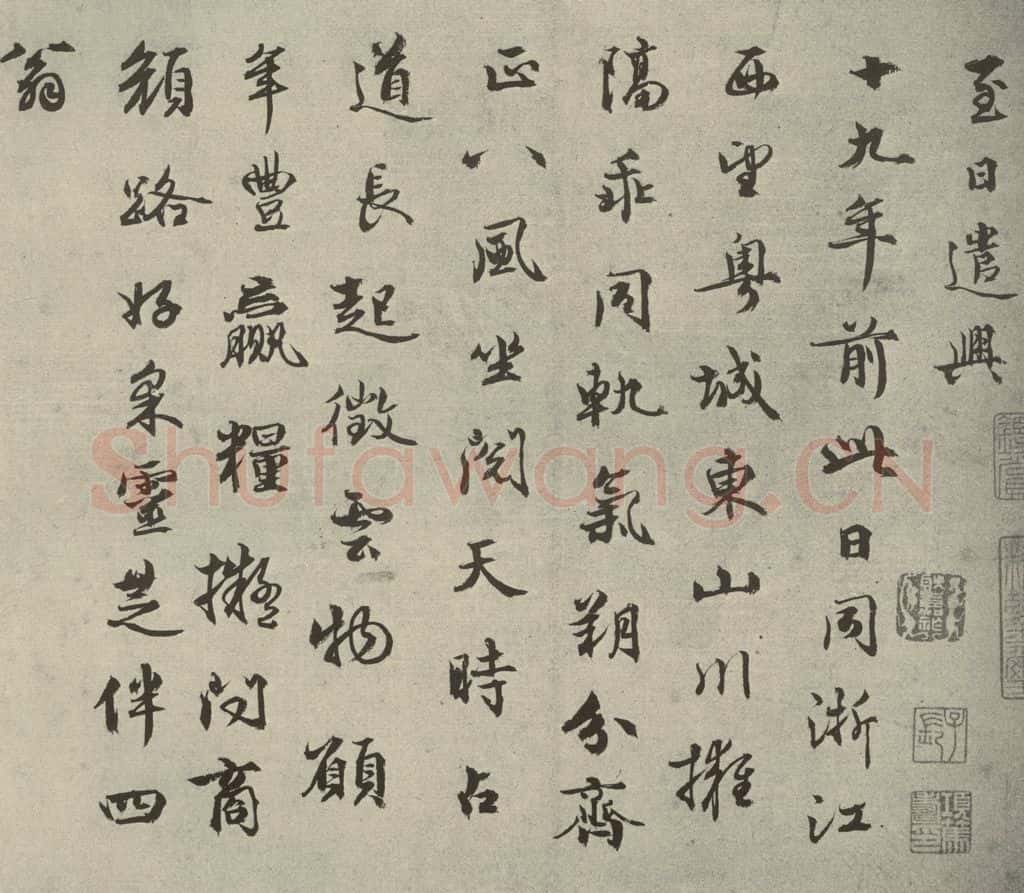 至日遣興
十九年前此日同浙江
西望粵城東山川擁
隔乖同軌氣朔分齊
正八風坐閱天時占
道長起徵雲物願
年豐贏糧擬問商
顏路好采靈芝伴四
翁
Shufawang.CN